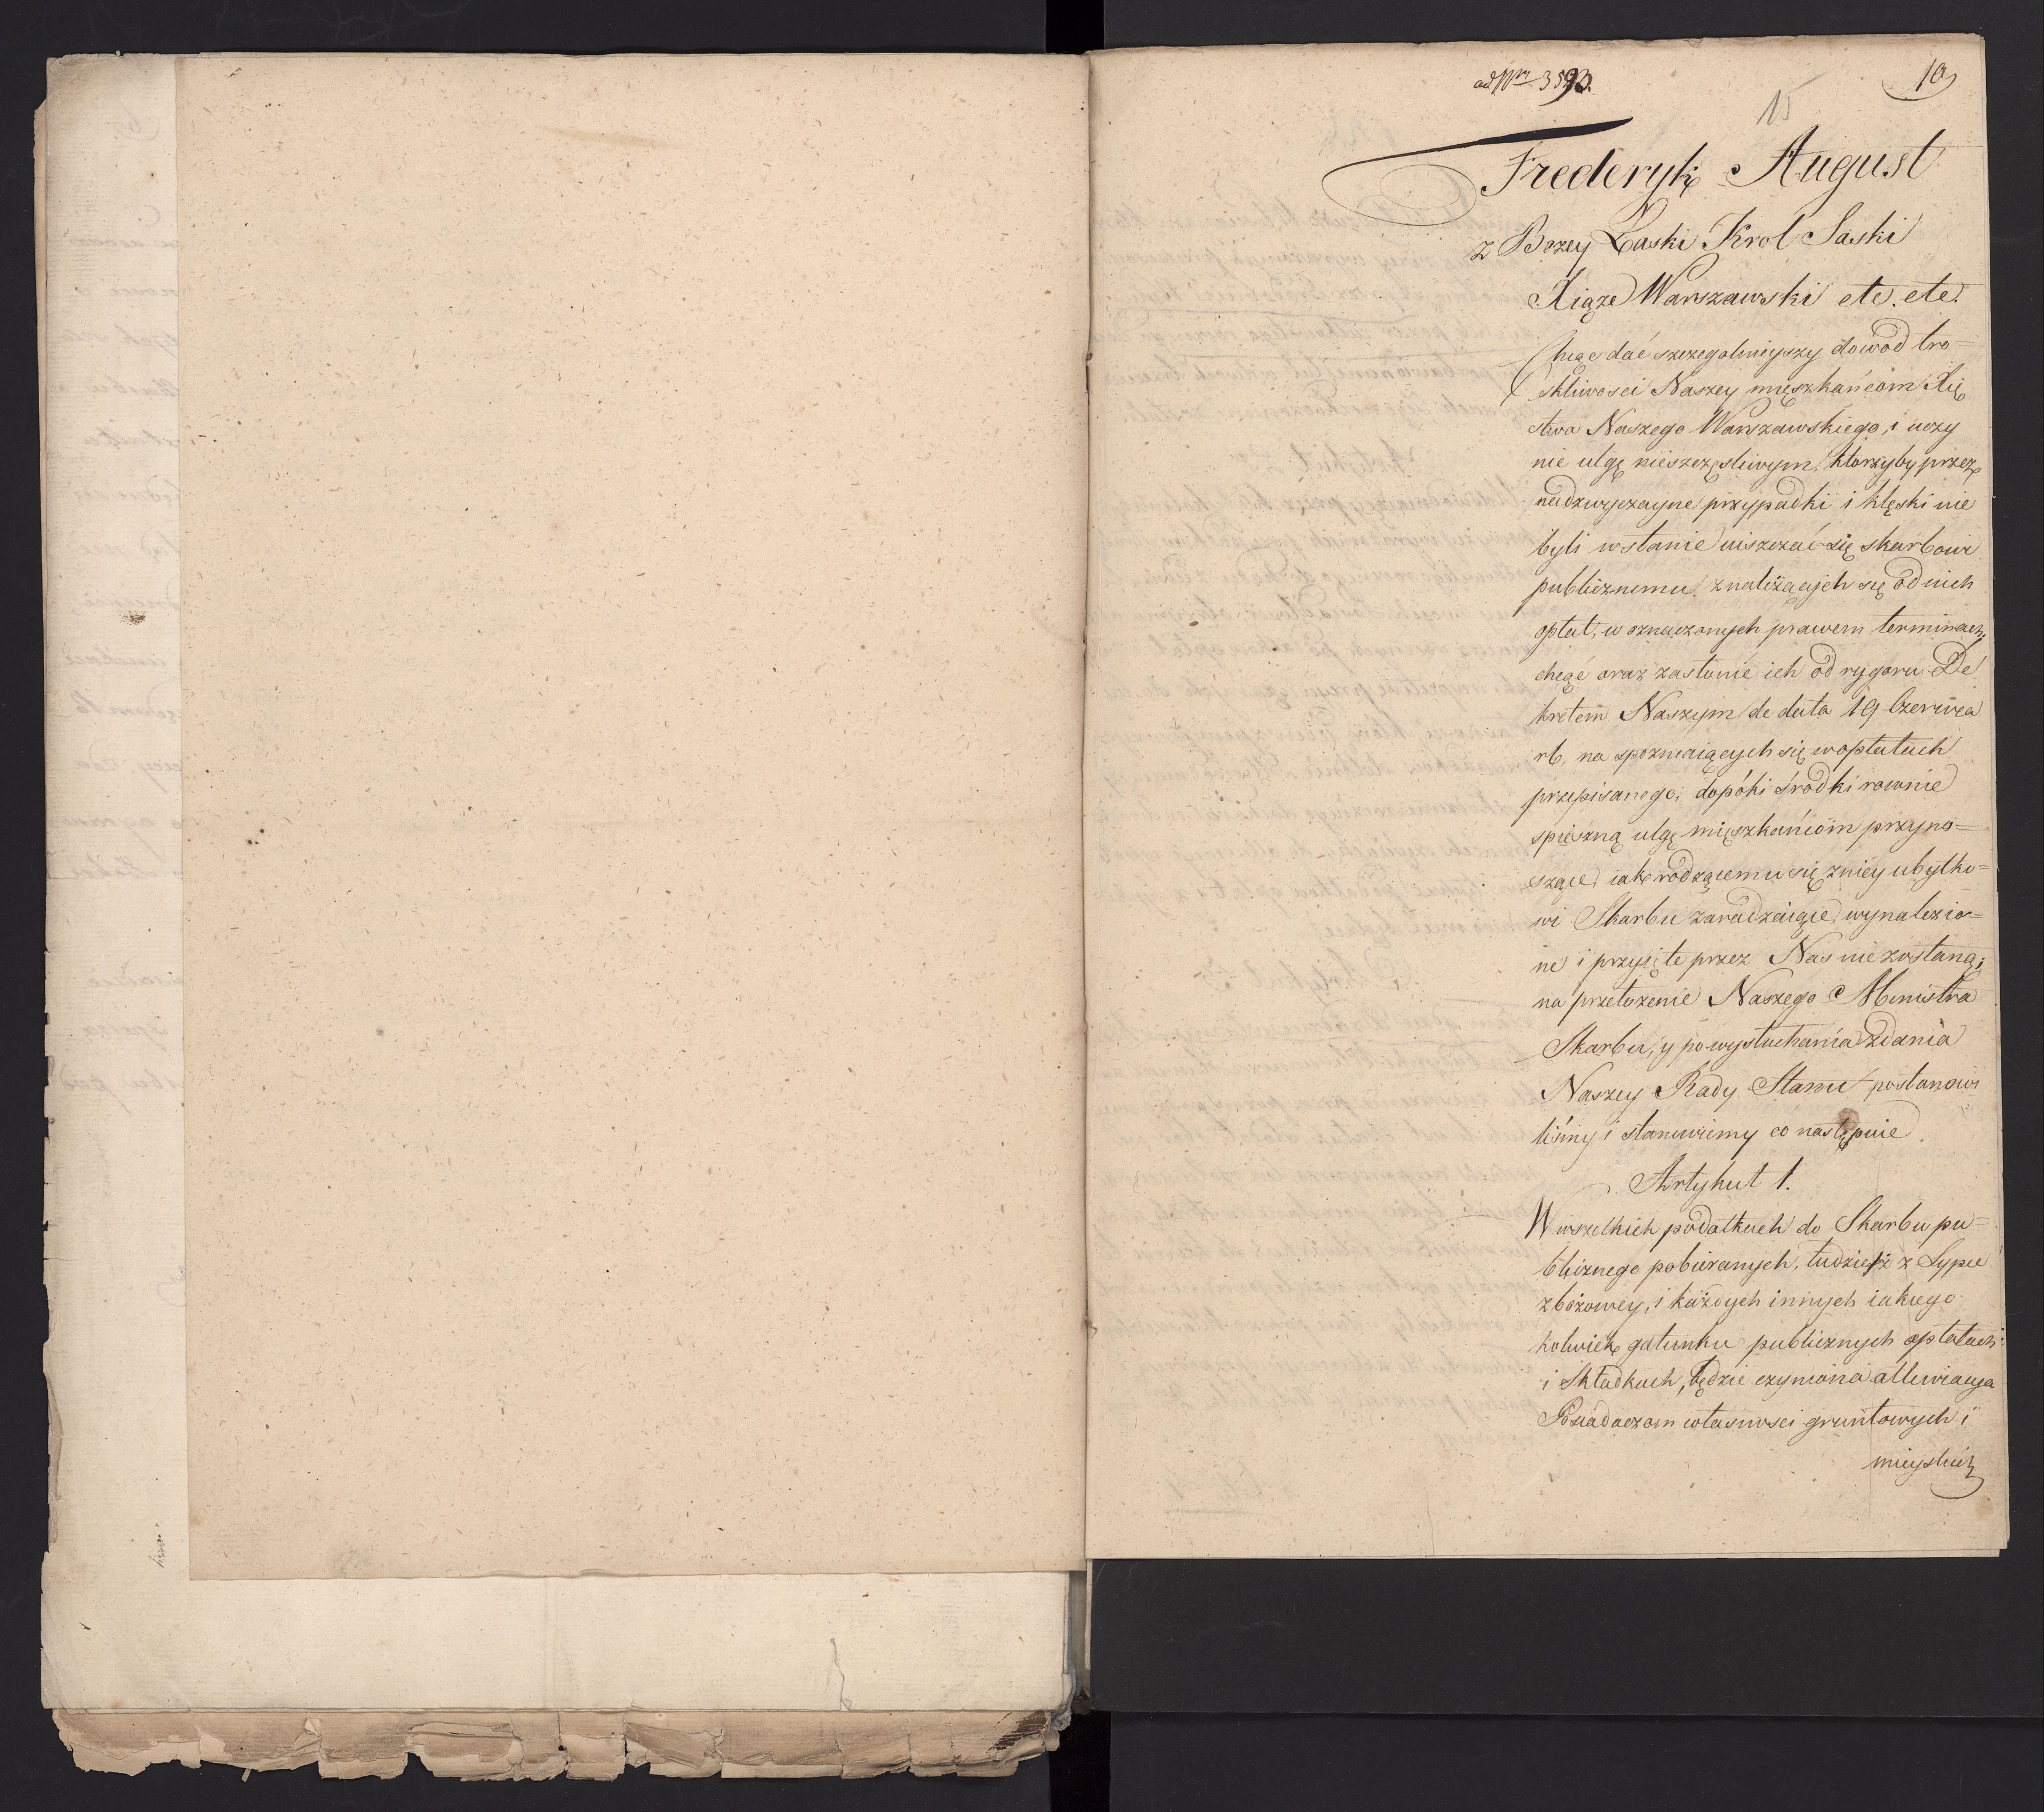 ad Nrm 3593.
10
15
Frederyk August
z Bozey Łaski Krol Saski
Xiąze Warszawski etc. etc.
Chcąc dać szczegolnieyszy dowod tro-
skliwosci Naszey mięszkańcom Xię
stwa Naszego Warszawskiego, i uczy
nic ulgę nieszczęsliwym, ktorzyby przez
nadzwyczayne przypadki i klęski nie
byli w stanie uiszczać się skarbowi
publicznemu, z należących się od nich
opłat, w oznaczonych prawem terminach,
chcąc oraz zasłonić ich od rygoru De
kretem Naszym de data 19 Czerwca
rb, na spoznaiących się w opłatach
przepisanego, dopóki środki rownie
spieszną ulgę mięszkańcom przyno=
szące, iak rodzącemu się zniey ubytko=
wi Skarbu zaradzaiące, wynalezio=
ne i przyięte przez Nas nie zostaną;
na przełozenie Naszego Ministra
Skarbu, y po wysłuchania zdania
Naszey Rady Stanu postanowi
liśmy i stanowiemy co następuie.
Artykuł 1.
W wszelkich podatkach do Skarbu pu=
blicznego pobieranych, tudzież z Sypce
zbożowey, i każdych innych iakiego
kolwiek gatunku publicznych opłatach
i Składkach, będzie czyniona allewiacya
Posiadaczom własnosci gruntowych i
mieyskich